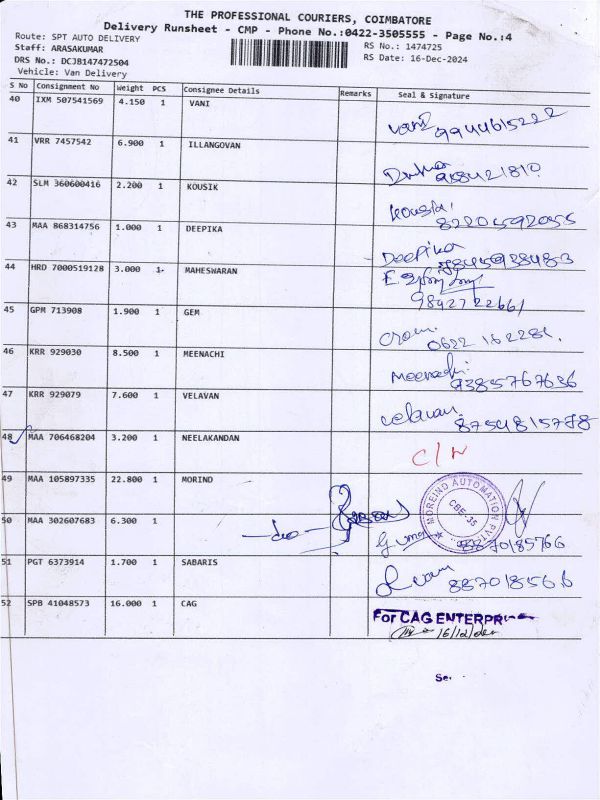 THE PROFESSIONAL COURIERS, COIMBATORE
Delivery Runsheet - CMP - Phone No.:0422-3505555 - Page No.:4
Route: SPT AUTO DELIVERY RS No.: 1474725
Staff: ARASAKUMAR RS Date: 16-Dec-2024
DRS No.: DCJB147472504
Vehicle: Van Delivery
S No Consignment No Weight PCS Consignee Details Remarks Seal & Signature
40 IXM 507541569 4.150 1 VANI
Vani 9944615222
41 VRR 7457542 6.900 1 ILLANGOVAN
42 SLM 360600416 2.200 1 KOUSIK
Kousik
43 MAA 868314756 1.000 1 DEEPIKA
Deepika
44 HRD 7000519128 3.000 1 MAHESWARAN
45 GPM 713908 1.900 1 GEM
46 KRR 929030 8.500 1 MEENACHI
Meenachi
9385767636
47 KRR 929079 7.600 1 VELAVAN
velavan
48 MAA 706468204 3.200 1 NEELAKANDAN
49 MAA 105897335 22.800 1 MORIND
MOREIND AUTOMATION PVT
CBE-35
50 MAA 302607683 6.300 1
-do-
9887085766
51 PGT 6373914 1.700 1 SABARIS
52 SPB 41048573 16.000 1 CAG
For CAG ENTERPR
16/12/